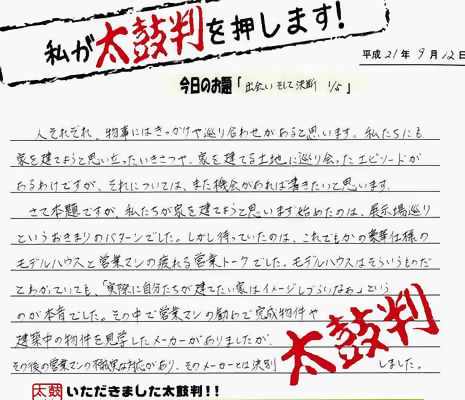 私が太鼓判を押します!
平成21年9月12日
今日のお題「出会い そして決断 1/5」
人それぞれ、物事にはきっかけや巡り合わせがあると思います。私たちにも
家を建てようと思い立ったいきさつや、家を建てる土地に巡り会ったエピソードが
あるわけですが、それについては、また機会があれば書きたいと思います。
さて本題ですが、私たちが家を建てようと思いまず始めたのは、展示場巡り
というおきまりのパターンでした。しかし待っていたのは、これでもかの豪華仕様の
モデルハウスと営業マンの疲れる営業トークでした。モデルハウスはそういうものだ
とわかっていても、「実際に自分たちが建てたい家はイメージしづらいなぁ」という
のが本音でした。その中で営業マンの勧めで完成物件や
建築中の物件を見学したメーカーがありましたが、
その後の営業マンの不誠実な対応があり、そのメーカーとは決別
しました。
太鼓判
太鼓
いただきました太鼓判!!